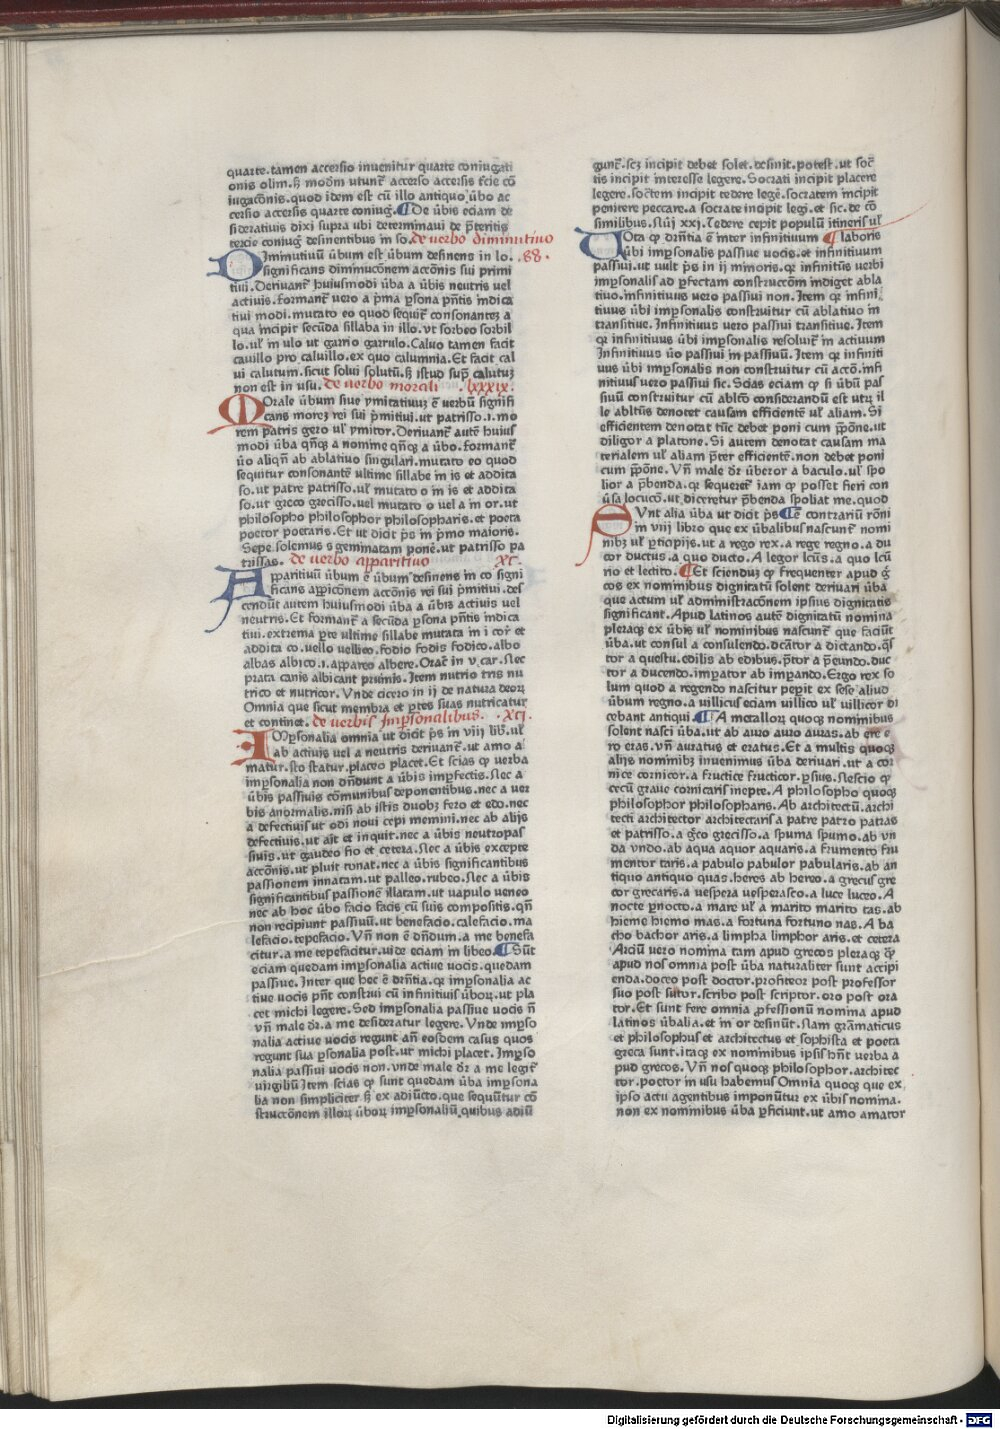 quarte.tamen accersio inuenitur quarte coniugati
onis olim.sꝫ modm̄ utunt᷑ accerso accersis t̄cie cō
iugacōnis.quod idem est cū illo antiquo ūbo ac
cersio accersis quarte coniug̃.¶De ūbis eciam de
sideratiuis dixi supra ubi determinaui de p̄teritis
tercie coniug̃ desinentibus in so.de verbo diminutiuo
DIminutiuū ūbum est ūbum desinens in lo. .88.
significans diminucōnem accōnis sui primi
tiui.Deriuant᷑ huiusmodi ūba a ūbis neutris uel
actiuis.formant᷑ vero a p̄ma ꝑsona pn̄tis indica
tiui modi.mutato eo quod sequit᷑ consonantez a
qua incipit secūda sillaba in illo.vt sorbeo sorbil
lo.ul̄ in ulo ut garrio garrulo.Caluo tamen facit
cauillo pro caluillo.ex quo calumnia.Et facit cal
ui calutum.sicut solui solutū.sꝫ istud suꝑ calutuꝫ
non est in usu. de verbo morali .lxxxix.
MOrale ūbum siue ymitatiuuꝫ ē verbū signifi
cans moreꝫ rei sui p̄mitiui.ut patrisso.i.mo
rem patris gero ul̄ ymitor.Deriuant᷑ autē huius
modi ūba qn̄qꝫ a nomine qn̄qꝫ a ūbo.formant᷑
ūo aliqn̄ ab ablatiuo singulari.mutato eo quod
sequitur consonantē ultime sillabe in is et addita
so.ut patre patrisso.ul̄ mutato o in is et addita
so.ut greco grecisso.uel mutato o uel a in or.ut
philosopho philosophor philosopharis.et poeta
poetor poetaris.Et ut dicit p̄s in p̄mo maioris.
Sepe solemus s geminatam ponē.ut patrisso pa
trissas. de verbo apparitiuo xc.
APparitiuū ūbum ē ūbum desinens in co signi
ficans aꝑicōnem accōnis rei sui p̄mitiui.des
cendūt autem huiusmodi ūba a ūbis actiuis uel
neutris.Et formant᷑ a secūda ꝑsona pn̄tis indica
tiui.extrema ꝑte ultime sillabe mutata in i cor᷑ et
addita co.uello vellico.fodio fodis fodico.albo
albas albico.i.appareo albere.Orac᷑ in v.car.Nec
prata canis albicant pruinis.Item nutrio tris nu
trico et nutricor.Vnde cicero in ij de natura deoꝝ
Omnia que sicut membra et ꝑtes suas nutricatur
et continet. de verbis Imꝑsonalibus. .xcj.
IMꝑsonalia omnia ut dicit p̄s in viij lib.ul̄
ab actiuis uel a neutris deriuant᷑.ut amo a
matur.sto statur.placeo placet.Et scias ꝙ verba
imꝑsonalia non dn̄dunt a ūbis imꝑfectis.Nec a
ūbis passiuis cōmunibus deponentibus.nec a ver
bis anormalis.nisi ab istis duobꝫ fero et edo.nec
a defectiuis ut odi noui cepi memini.nec ab alijs
defectiuis.ut ait et inquit.nec a ūbis neutropas
siuis.ut gaudeo fio et cetera.Nec a ūbis excepte
accōnis.ut pluit tonat.nec a ūbis significantibus
passionem innatam.ut palleo.rubeo.Nec a ūbis
significantibus passionē illatam.ut uapulo ueneo
nec ab hoc ūbo facio facis cū suis compositis.qn̄
non recipiunt passiuū.ut benefacio.calefacio.ma
lefacio.tepefacio.Vn̄ non ē dn̄dum.a me benefa
citur.a me tepefacitur.uide eciam in libeo.¶Sūt
eciam quedam imꝑsonalia actiue uocis.quedam
passiue.Inter que hec ē drn̄tia.qꝛ imꝑsonalia ac
tiue uocis pn̄t construi cū infinitiuis ūboꝝ.ut pla
cet michi legere.Sed imꝑsonalia passiue uocis n̄
vn̄ male dr̄.a me desideratur legere.Vnde imꝑso
nalia actiue uocis regunt an̄ eosdem casus quos
regunt sua ꝑsonalia post.ut michi placet.Imꝑso
nalia passiui uocis non.vnde male dr̄ a me legit᷑
virgiliū Item scias ꝙ sunt quedam ūba imꝑsona
lia non simpliciter sꝫ ex adiūcto.que sequūtur cō
structōnem illoꝝ ūboꝝ imꝑsonaliū quibus adiū
gunt᷑.scꝫ incipit debet solet.desinit.potest.ut soc᷑
tis incipit interesse legere.Socrati incipit placere
legere.soc᷑tem incipit tedere legē.socratem incipit
penitere peccare.a socrate incipit legi.et sic.de cō
similibus.Nūj xxj.Tedere cepit populū itineris ul̄
NOta ꝙ drn̄tia ē inter infinitiuum ¶laboris
ūbi imꝑsonalis passiue uocis.et infinitiuum
passiui.ut uult p̄s in ij minoris.qꝛ infinitiūs verbi
imꝑsonalis ad ꝑfectam construccōm indiget abla
tiuo.infinitiuus uero passiui non.Item qꝛ infini
tiuus ūbi imꝑsonalis construitur cū ablatiuo in
transitiue.Infinitiuus uero passiui transitiue.Item
qꝛ infinitiuus ūbi imꝑsonalis resoluit᷑ in actiuum
Infinitiuus ūo passiui in passiuū.Item qꝛ infiniti
uus ūbi imꝑsonalis non construitur cū actō.infi
nitiuus vero passiui sic.Scias eciam ꝙ si ūbū pas
siuū construitur cū ablctō considerandū est utꝝ il
le ablt̄us denotet causam efficientē ul̄ aliam.Si
efficientem denotat tūc debet poni cum p̄pōne.ut
diligor a platone.Si autem denotat causam ma
terialem ul̄ aliam p̄ter efficientē.non debet poni
cum p̄pōne.Vn̄ male dr̄ ūberor a baculo.ul̄ spo
lior a p̄benda.qꝛ sequeret᷑ iam ꝙ posset fieri con
ūsa locucō.ut diceretur p̄benda spoliat me.quod
SVnt alia ūba ut dicit p̄s ¶ē contrariū rōni
in viij libro que ex ūbalibus nascunt᷑ nomi
nibꝫ ul̄ ꝑticipijs.ut a rego rex.a rege regno.a du
cor ductus.a quo ducto.A legor lcūs.a quo lcū
rio et lectito.¶Et sciendū ꝙ frequenter apud g᷑
cos ex nominibus dignitatū solent deriuari ūba
que actum ul̄ administracōnem ipsius dignitatis
significant.Apud latinos autē dignitatū nomina
pleraqꝫ ex ūbis ul̄ nominibus nascunt᷑ que faciūt
ūba.ut consul a consulendo.dcātor a dictando.q̄s
tor a questu.edilis ab edibus.p̄tor a p̄eundo.duc
tor a ducendo.imꝑator ab imꝑando.Ergo rex so
lum quod a regendo nascitur peꝑit ex sese aliud
ūbum regno.a villicus eciam villico ul̄ villicor di
cebant antiqui.¶A metalloꝝ quoqꝫ nominibus
solent nasci ūba.ut ab auro auro auras.ab ere e
ro eras.vn̄ auratus et eratus.Et a multis quoqꝫ
alijs nominibꝫ inuenimus ūba deriuari.ut a cor
nice cornicor.a fructice fructicor.ꝑsius.Nescio ꝙ
cecū graue cornicaris inepte.A philosopho quoqꝫ
philosophor philosopharis.Ab architectū.archi
tecti architector architectaris a patre patro patras
et patrisso.a g̃co grecisso.a spuma spumo.ab vn
da vndo.ab aqua aquor aquaris.a frumento fru
mentor taris.a pabulo pabulor pabularis.ab an
tiquo antiquo quas.heres ab hereo.a grecus gre
cor grecaris.a uespera uesperasco.a luce luceo.A
nocte ꝑnocto.a mare ul̄ a marito marito tas.ab
hieme hiemo mas.a fortuna fortuno nas.A ba
cho bachor aris.a limpha limphor aris.et cetera
Arciū uero nomina tam apud grecos pleraqꝫ q̄ꝫ
apud nos omnia post ūba naturaliter sunt accipi
enda.doceo post doctor.profiteor post professor
suo post sutor.scribo post scriptor.oro post ora
tor.Et sunt fere omnia ꝓfessionū nomina apud
latinos ūbalia.et in or desinūt.Nam gramaticus
et philosophus et architectus et sophista et poeta
greca sunt.itaqꝫ ex nominibus ipsis hn̄t verba a
pud grecos.Vn̄ nos quoqꝫ philosophor.architec
tor.poetor in usu habemus Omnia quoqꝫ que ex
ipso actu agentibus imponūtur ex ūbis nomina.
non ex nominibus ūba ꝑficiunt.ut amo amator
Digitalisierung gefördert durch die Deutsche Forschungsgemeinschaft - DFG